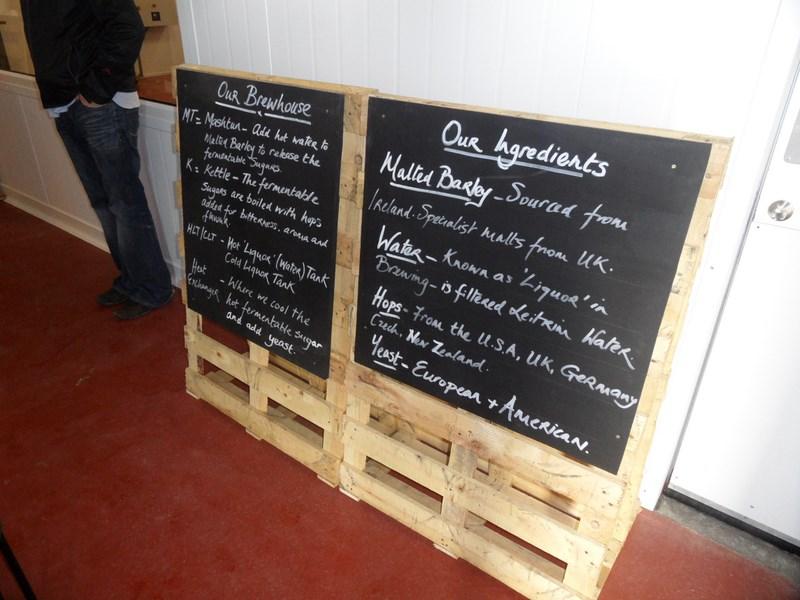 Our Brewhouse
MT = Mashtun - Add hot water to
Malted Barley to release the
fermentable Sugars.
K = Kettle - The fermentable
Sugars are boiled with hops
added for bitterness, aroma and
flavour.
HLT/CLT - Hot 'Liquor' (Water) Tank
Cold Liquor Tank
Heat
Exchanger - Where we cool the
hot fermentable sugar
and add yeast.
Our Ingredients
Malted Barley - Sourced from
Ireland. Specialist malts from UK.
Water - Known as 'Liquor' in
Brewing - is filtered Leitrim Water.
Hops - From the U.S.A, UK, Germany
Czech, New Zealand.
Yeast - European + American.